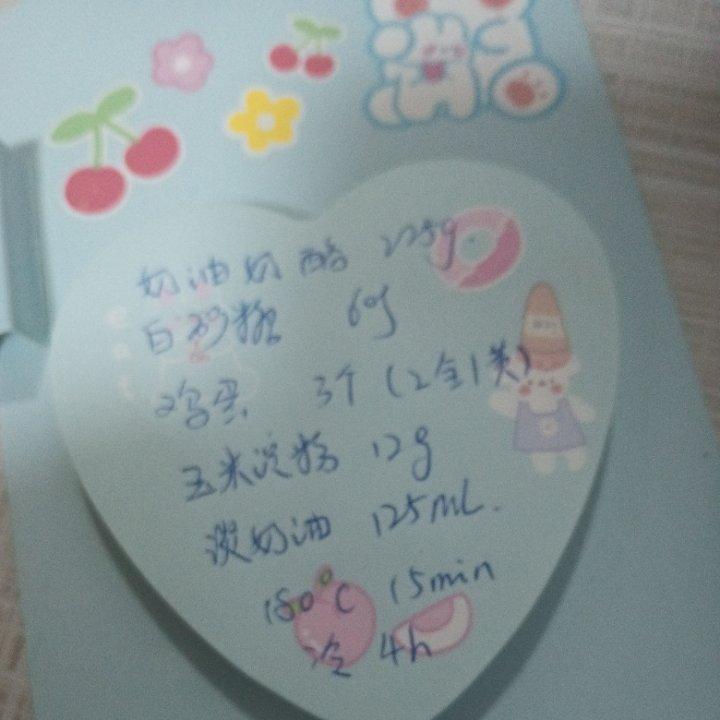 奶油奶酪 225g
白砂糖 60g
鸡蛋 3个(2全1黄)
玉米淀粉 12g
淡奶油 125mL.
180°C 15min
冷 4h